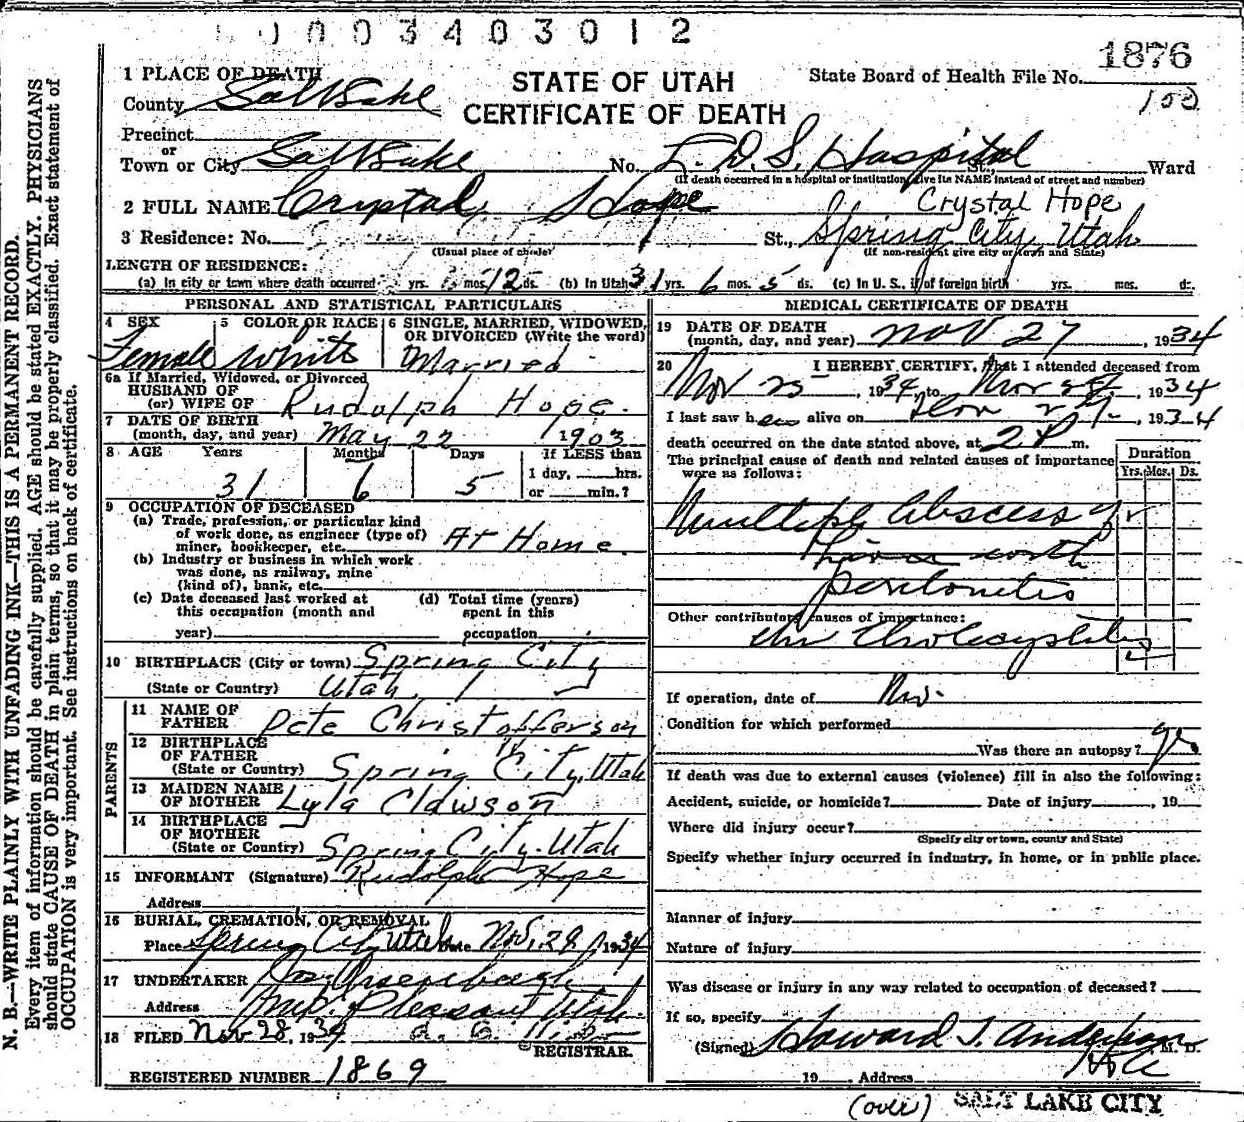 0003403012
1876
100
1 PLACE OF DEATH
STATE OF UTAH
CERTIFICATE OF DEATH
State Board of Health File No.
County Salt Lake
Precinct
or
Town or City Salt Lake No. L. D. S. Hospital St., Ward
(If death occurred in a hospital or institution, give its NAME instead of street and number)
2 FULL NAME Crystal Hope
Crystal Hope
3 Residence: No. St., Spring City, Utah
(Usual place of abode) (If non-resident give city or town and State)
LENGTH OF RESIDENCE:
(a) In city or town where death occurred yrs. mos. 12 ds. (b) In Utah 31 yrs. 6 mos. 5 ds. (c) In U. S., if of foreign birth yrs. mos. ds.
PERSONAL AND STATISTICAL PARTICULARS
4 SEX Female
5 COLOR OR RACE White
6 SINGLE, MARRIED, WIDOWED, OR DIVORCED (Write the word) Married
6a If Married, Widowed, or Divorced
HUSBAND OF
(or) WIFE OF Rudolph Hope.
7 DATE OF BIRTH
(month, day, and year) May 22 1903
8 AGE Years Months Days If LESS than
1 day, hrs.
31 6 5 or min.?
9 OCCUPATION OF DECEASED
(a) Trade, profession, or particular kind
of work done, as engineer (type of)
miner, bookkeeper, etc. At Home.
(b) Industry or business in which work
was done, as railway, mine
(kind of), bank, etc.
(c) Date deceased last worked at
this occupation (month and
year)
(d) Total time (years)
spent in this
occupation
10 BIRTHPLACE (City or town) Spring City
(State or Country) Utah.
PARENTS
11 NAME OF
FATHER Pete Christofferson
12 BIRTHPLACE
OF FATHER
(State or Country) Spring City, Utah
13 MAIDEN NAME
OF MOTHER Lyla Clawson
14 BIRTHPLACE
OF MOTHER
(State or Country) Spring City. Utah
15 INFORMANT (Signature) Rudolph Hope
Address
16 BURIAL, CREMATION, OR REMOVAL
Place Spring City Utah Date Nov. 29, 1934
17 UNDERTAKER
Address Mt. Pleasant Utah
18 FILED Nov 28, 1934
REGISTRAR.
REGISTERED NUMBER 1869
MEDICAL CERTIFICATE OF DEATH
19 DATE OF DEATH
(month, day, and year) Nov 27, 1934
20 I HEREBY CERTIFY, that I attended deceased from
Nov 25, 1934 to Nov 27, 1934
I last saw her alive on Nov 27, 1934
death occurred on the date stated above, at 2 P m.
The principal cause of death and related causes of importance
were as follows:
Duration
Yrs. Mos. Ds.
Multiple Abscess of
Liver with
peritonitis
Other contributory causes of importance:
Chr Cholecystitis
If operation, date of No.
Condition for which performed
Was there an autopsy? yes
If death was due to external causes (violence) fill in also the following:
Accident, suicide, or homicide? Date of injury , 19
Where did injury occur?
(Specify city or town, county and State)
Specify whether injury occurred in industry, in home, or in public place.
Manner of injury
Nature of injury
Was disease or injury in any way related to occupation of deceased?
If so, specify
(Signed) Howard T. Anderson M. D.
19 , Address
(over) SALT LAKE CITY
N. B.—WRITE PLAINLY WITH UNFADING INK—THIS IS A PERMANENT RECORD.
Every item of information should be carefully supplied. AGE should be stated EXACTLY. PHYSICIANS
should state CAUSE OF DEATH in plain terms, so that it may be properly classified. Exact statement of
OCCUPATION is very important. See instructions on back of certificate.